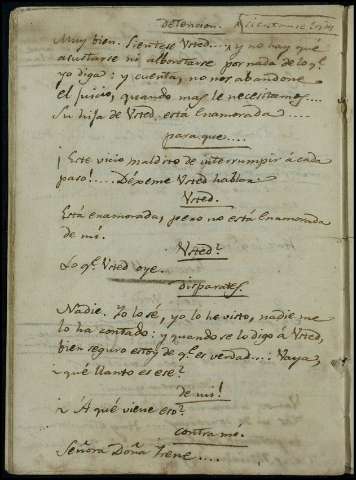 detencion. Sientanse los dos
Muy bien. Sientese Vsted.... y no hay que
asustarse ni alborotarse por nada de lo q.e
yo diga: y cuenta, no nos abandone
el juicio, quando mas le necesitamos....
Su hija de Vsted, está enamorada....
para que....
¡Este vicio maldito de interrumpir á cada
paso!.... Déxeme Vsted hablar.
Vsted.
Está enamorada, pero no está enamorada
de mi.
Vsted?
Lo q.e Vsted oye.
disparates.
Nadie. Yo lo sé, yo lo he visto, nadie me
lo ha contado: y quando se lo digo á Vsted,
bien seguro estoy de q.e es verdad...: Vaya,
¿qué llanto es ese?
de mi!
¿A qué viene eso?
contra mi.
Señora Doña Irene....